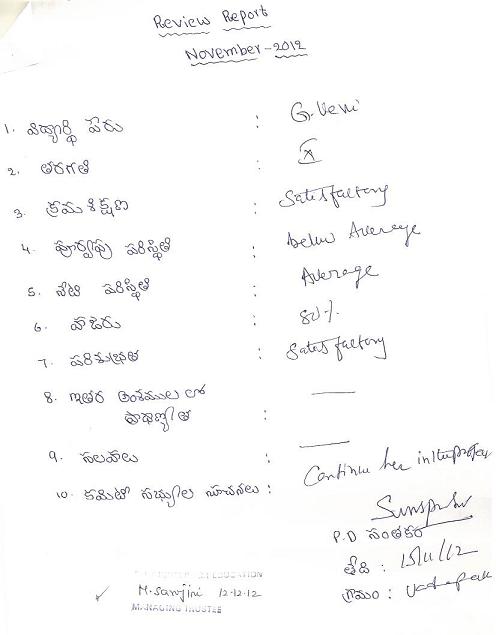 Review Report
November-2012
1. విద్యార్థి పేరు : G. Veni
2. తరగతి : X
3. క్రమశిక్షణ : Satesfactory
4. పూర్వపు పరిస్థితి : below Average
5. నేటి పరిస్థితి : Average
6. హాజరు : 80%
7. పరిశుభ్రత : Satesfactory
8. ఇతర అంశముల లో
ప్రావీణ్యత : ——
9. సలహాలు : ——
10. కమిటీ సభ్యుల సూచనలు : Continue her in
P.D సంతకం
తేది : 15/11/12
గ్రామం :
M. Sarojini 12-12-12
MANAGING TRUSTEE